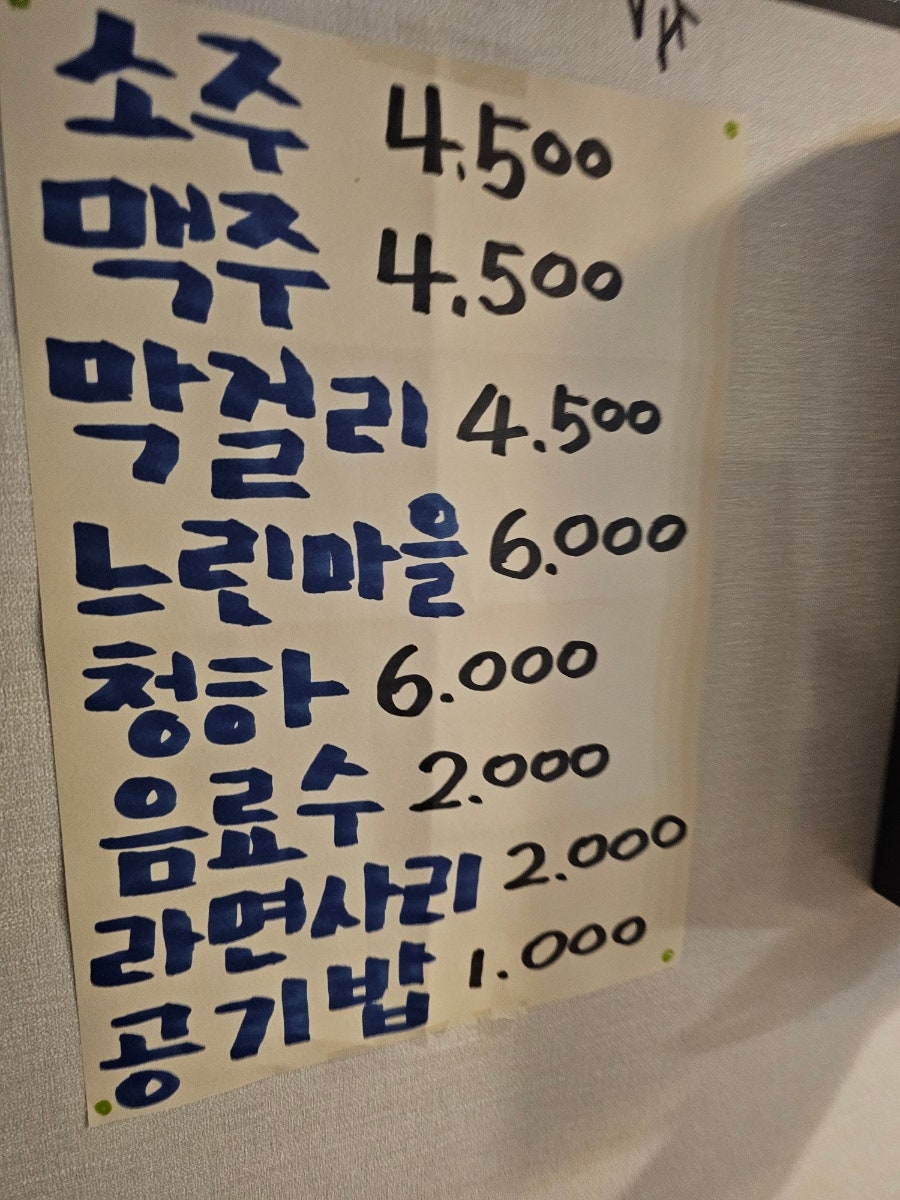 소주 4.500
맥주 4.500
막걸리 4.500
느린마을 6.000
청하 6.000
음료수 2.000
라면사리 2.000
공기밥 1.000